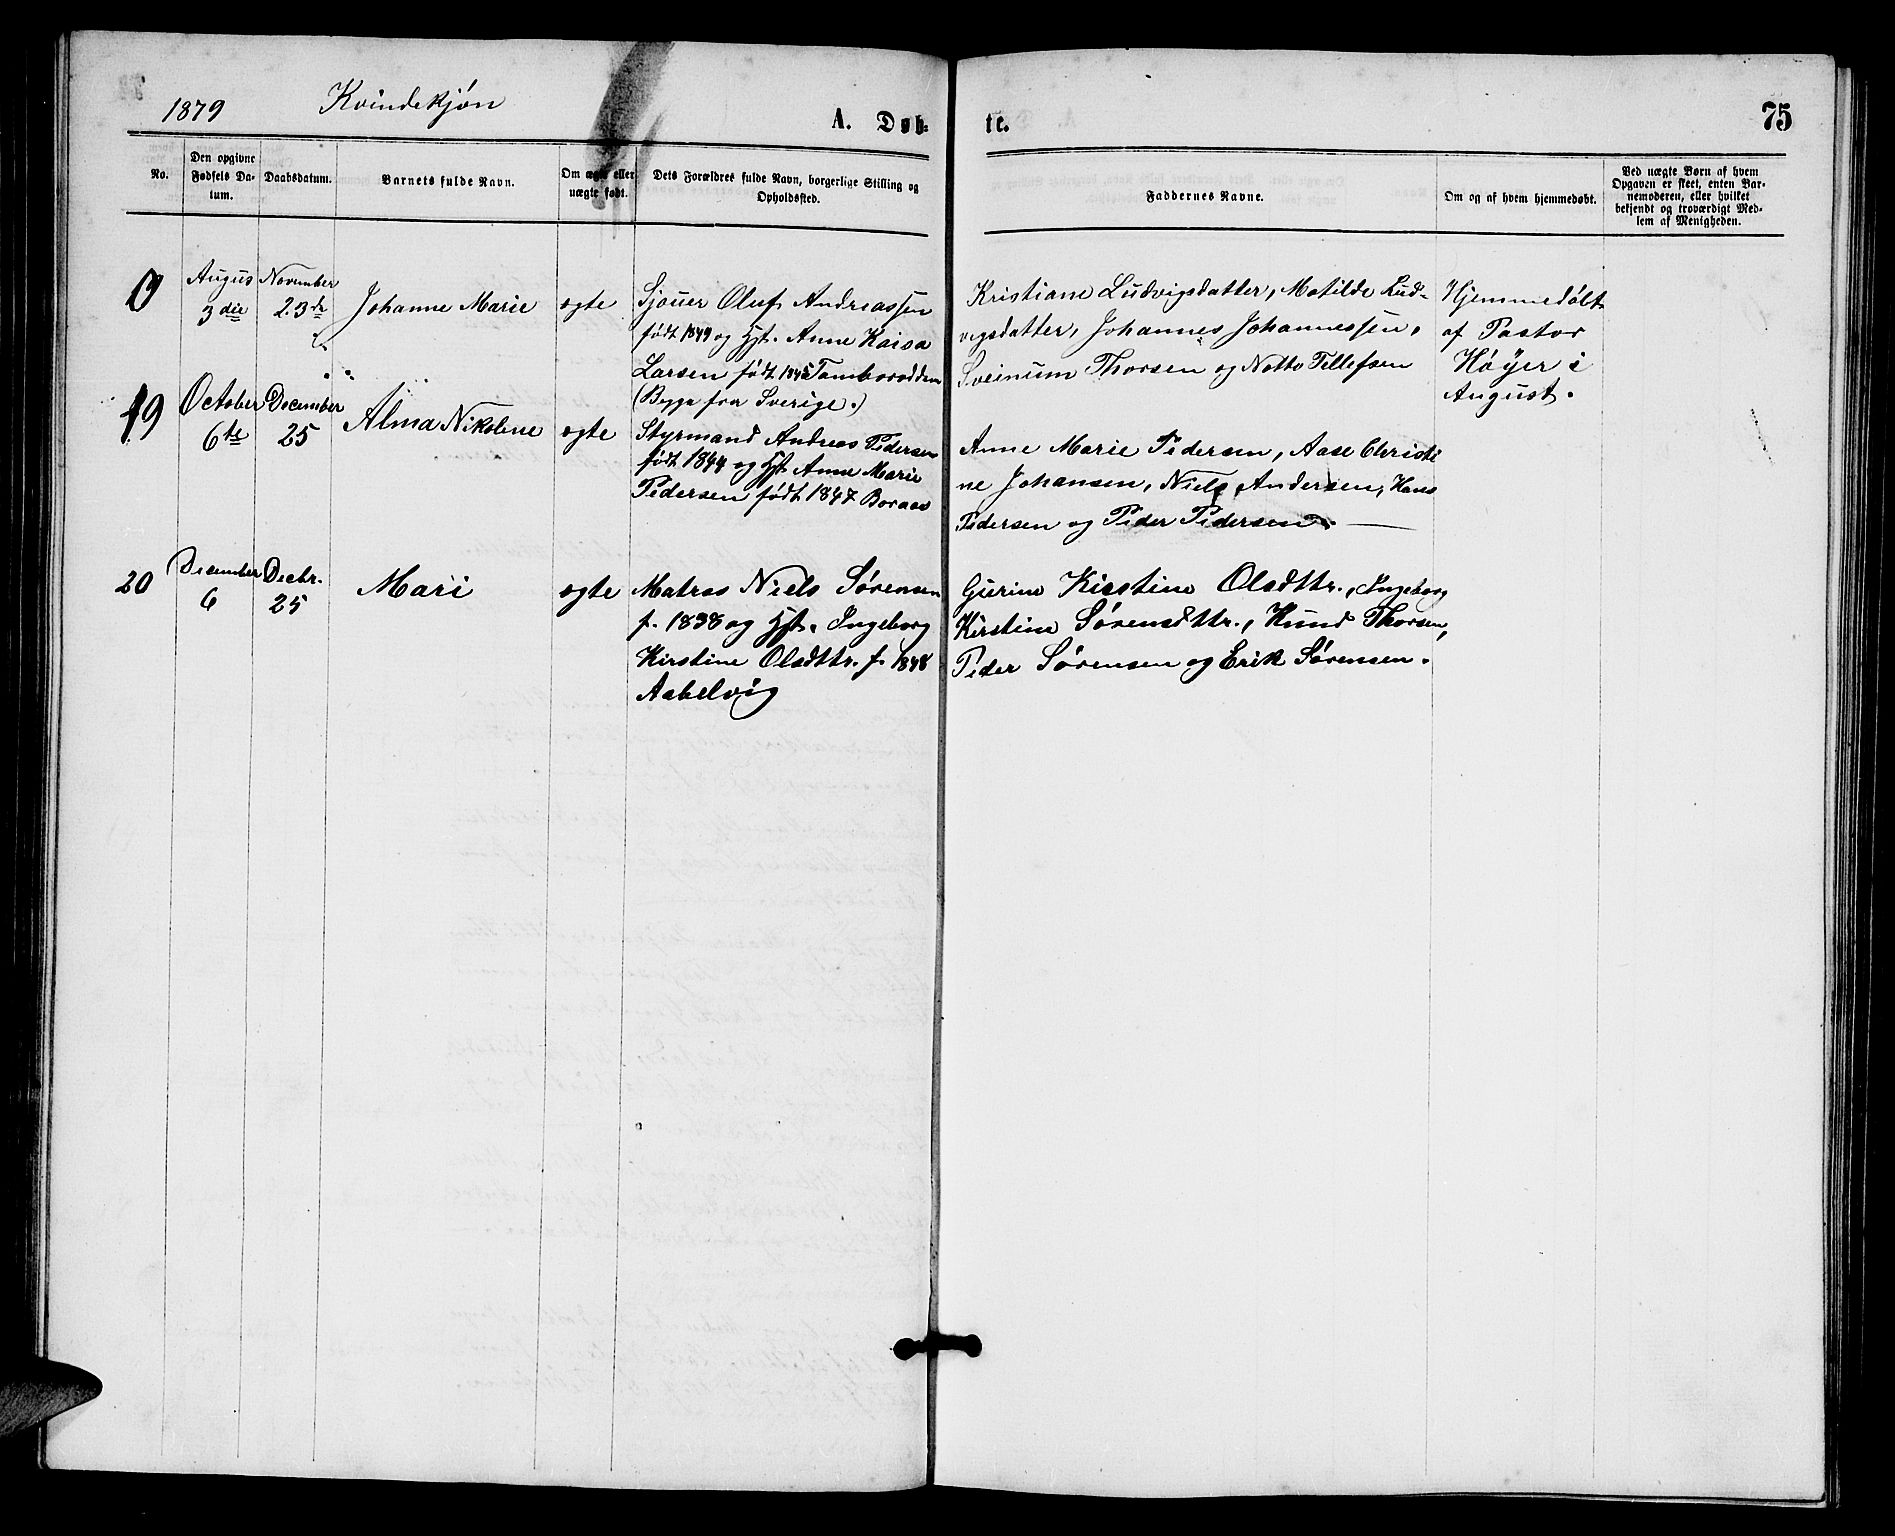 1879 Kvindekjøn
A. Døb- te. 75
No.
Den opgivne Fødsels Da- tum.
Daabsdatum.
Barnets fulde Navn.
Om ægte eller uægte født.
Dets Forældres fulde Navn, borgerlige Stilling og Opholdssted.
Faddernes Navne.
Om og af hvem hjemmedøbt.
Ved uægte Børn af hvem Opgaven er skeet, enten Bar- nemoderen, eller hvilket bekjendt og troværdigt Med- lem af Menigheden.
Augus 3die
November 23de
Johanne Marie
ægte
Sjouer Oluf Andreassen
født 1849 og Hst. Anne Kaisa
Larsen født 1845
(Bygn fra Sverige.)
Kristiane Ludvigsdatter, Matilde Lud-
vigsdatter, Johannes Johannessen,
Sveinum Thorsen og Notto Tellefsen
Hjemmedøbt
af Pastor
Høyer i
August.
19
October 6te
December 25
Alma Nikoline
ægte
Styrmand Andreas Pedersen
født 1844 og Hst Anne Marie
Pedersen født 1847 Boraas
Anne Marie Pedersen, Aase Christi
ne Johansen, Niels Andersen, Hans
Pedersen og Peder Pedersen.
20
December 6
Decbr. 25
Mari
ægte
Matros Niels Sørensen
f. 1838 og Hst. Ingeborg
Kirstine Olsdttr. f. 1848
Aabelvig
Gurine Kirstine Olsdttr., Ingeborg
Kirstine Sørensdttr., Knud Thorsen,
Peder Sørensen og Erik Sørensen.